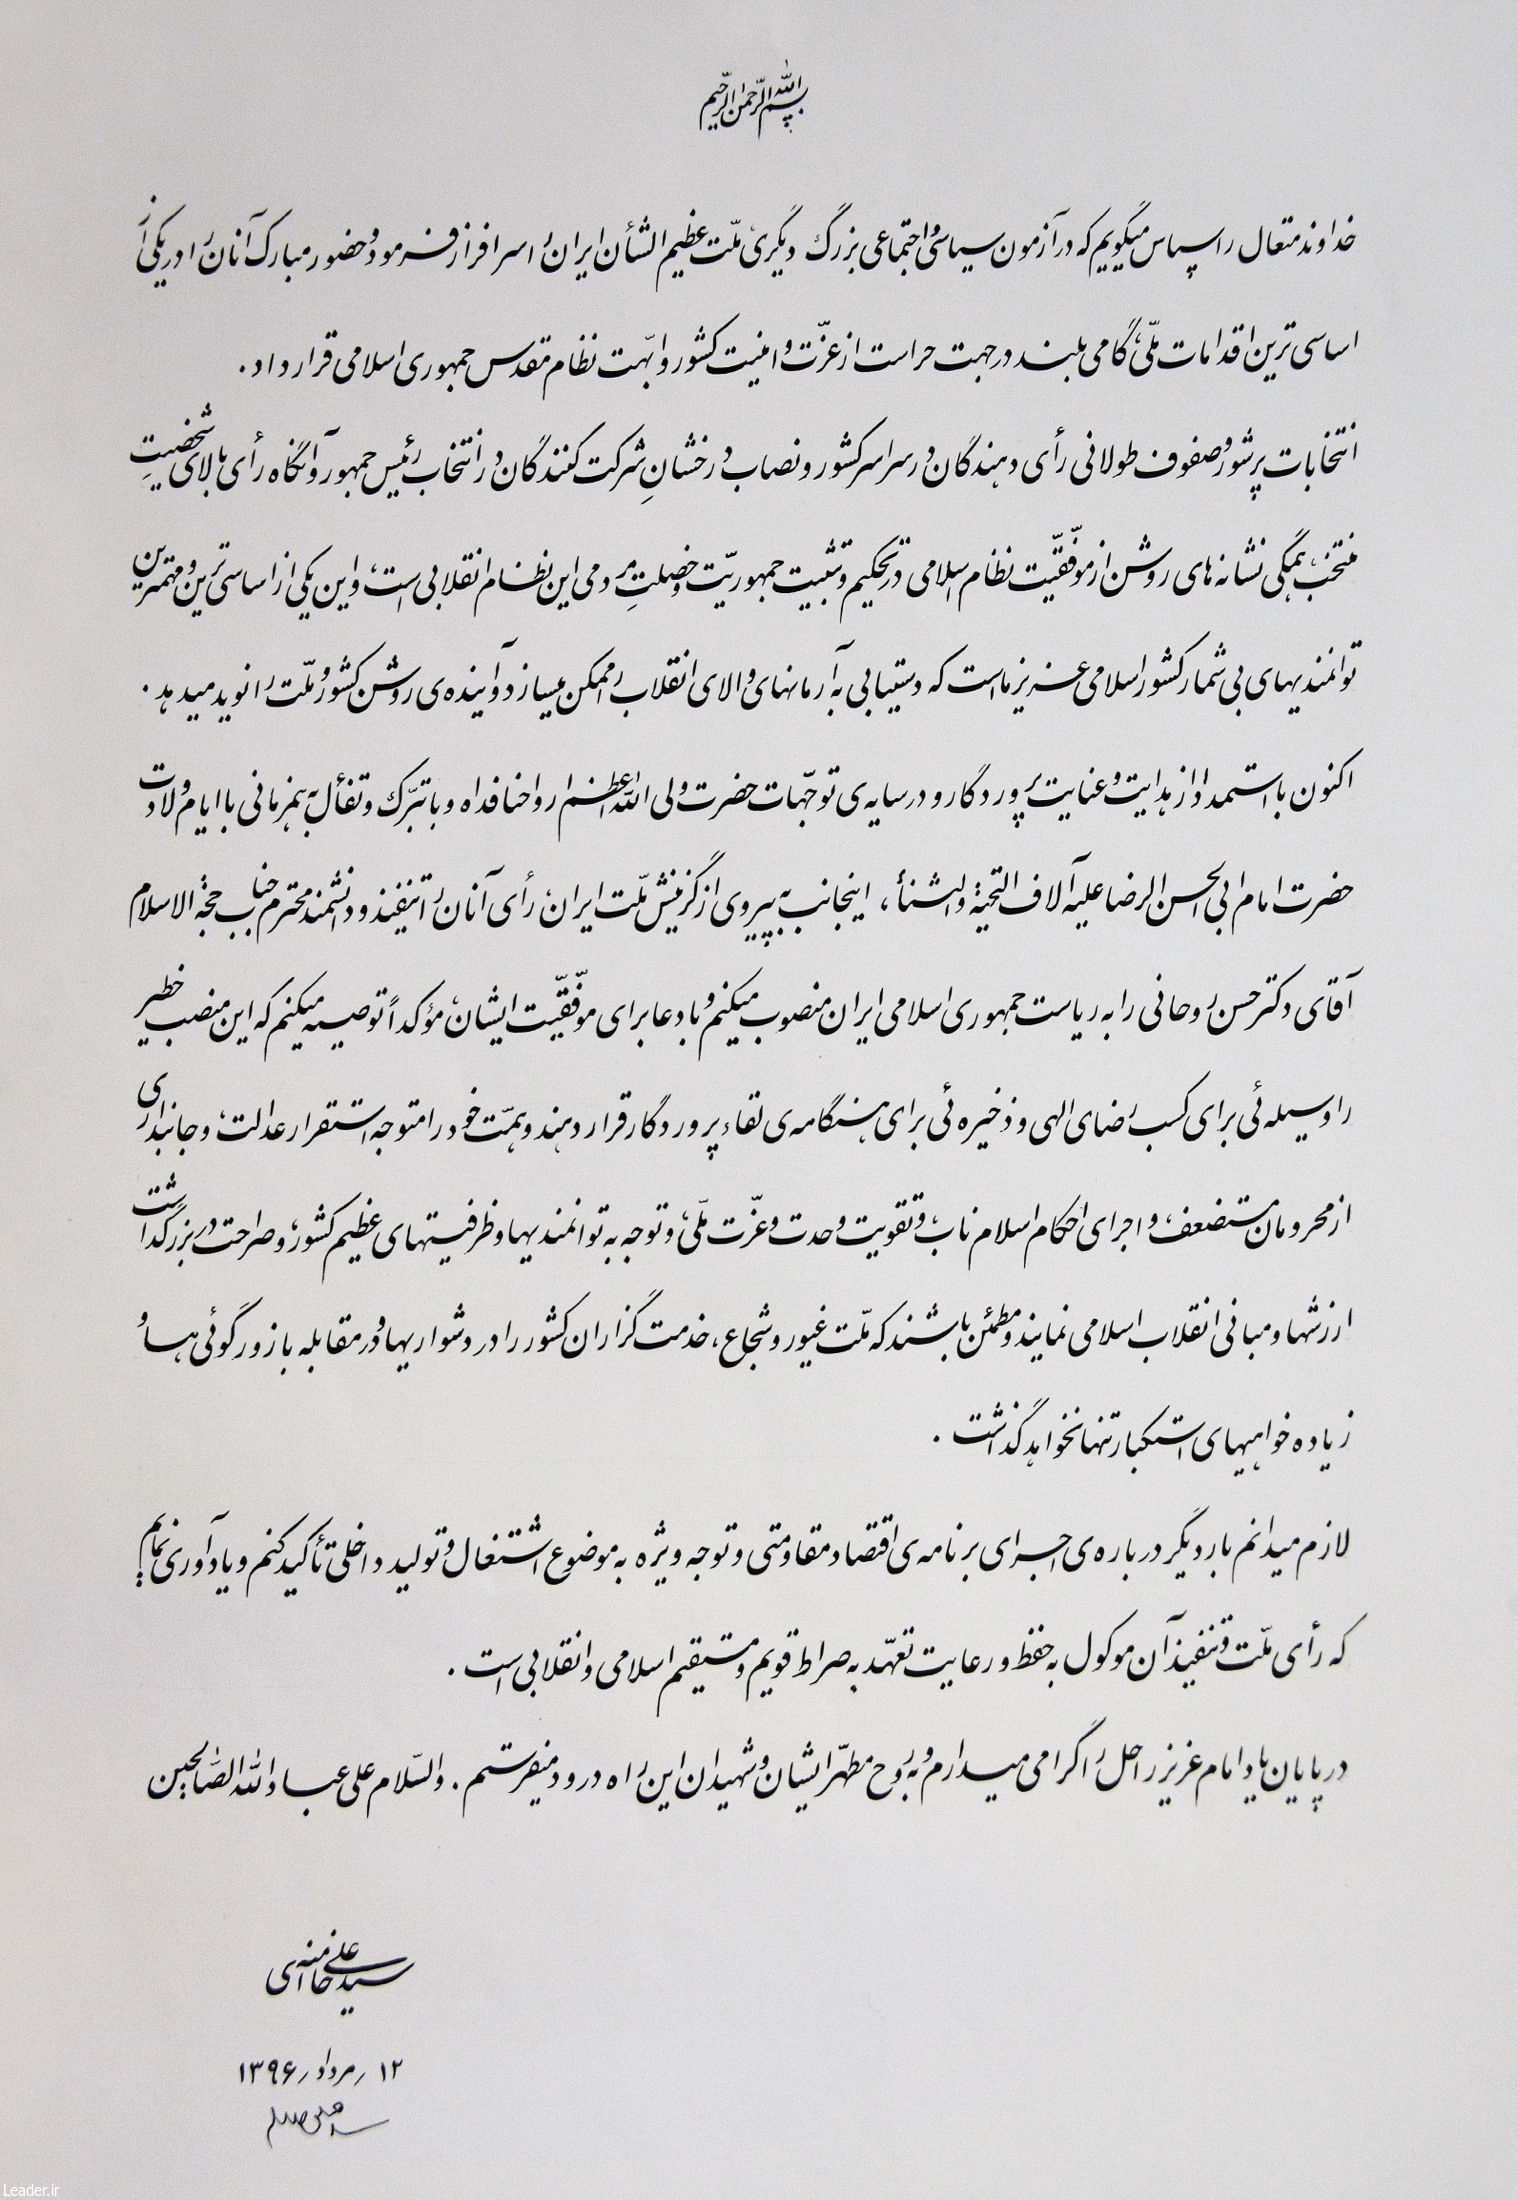 بسم الله الرحمن الرحیم
خداوند متعال را سپاس میگویم که در آزمون سیاسی و اجتماعی بزرگ دیگری، ملّت عظیم الشأن ایران را سرافراز فرمود و حضور مبارک آنان را در یکی از
اساسی ترین اقدامات ملّی، گامی بلند در جهت حراست از عزّت و امنیت کشور و ابّهت نظام مقدس جمهوری اسلامی قرار داد.
انتخابات پرشور و صفوف طولانی رأی دهندگان در سراسر کشور و نصاب درخشانِ شرکت کنندگان در انتخاب رئیس جمهور و آنگاه رأی بالای شخصیتِ
منتخب، همگی نشانه های روشن از موفّقیّت نظام اسلامی در تحکیم و تثبیت جمهوریّت و خصلتِ مردمی این نظام انقلابی است، و این یکی از اساسی ترین و مهمترین
توانمندیهای بی شمار کشور اسلامی عزیز ما است که دستیابی به آرمانهای والای انقلاب را ممکن میسازد و آینده ی روشن کشور و ملّت را نوید میدهد.
اکنون با استمداد از هدایت و عنایت پروردگار و در سایه ی توجّهات حضرت ولی الله الاعظم ارواحنا فداه و با تبرّک و تفأل به همزمانی با ایام ولادت
حضرت امام ابی الحسن الرضا علیه آلاف التحیة والثناء، اینجانب به پیروی از گزینش ملّت ایران، رأی آنان را تنفیذ و دانشمند محترم جناب حجة الاسلام
آقای دکتر حسن روحانی را به ریاست جمهوری اسلامی ایران منصوب میکنم و با دعا برای موفّقیّت ایشان، مؤکداً توصیه میکنم که این منصب خطیر
را وسیله ئی برای کسب رضای الهی و ذخیره ئی برای هنگامه ی لقاء پروردگار قرار دهند و همّت خود را متوجه استقرار عدالت، و جانبداری
از محرومان مستضعف، و اجرای احکام اسلام ناب، و تقویت وحدت و عزّت ملّی، و توجه به توانمندیها و ظرفیتهای عظیم کشور، و صراحت در بزرگداشت
ارزشها و مبانی انقلاب اسلامی نمایند و مطمئن باشند که ملّت غیور و شجاع، خدمت گزاران کشور را در دشواریها و در مقابله با زورگوئی ها و
زیاده خواهیهای استکبار تنها نخواهد گذاشت.
لازم میدانم بار دیگر درباره ی اجرای برنامه ی اقتصاد مقاومتی و توجه ویژه به موضوع اشتغال و تولید داخلی تأکید کنم و یادآوری نمایم
که رأی ملّت و تنفیذ آن موکول به حفظ و رعایت تعهّد به صراط قویم و مستقیم اسلامی و انقلابی است.
در پایان یاد امام عزیز راحل را گرامی میدارم و به روح مطهّر ایشان و شهیدان این راه درود میفرستم. والسّلام علی عباد الله الصّالحین
سید علی خامنه ای
۱۲ / مرداد / ۱۳۹۶
Leader.ir